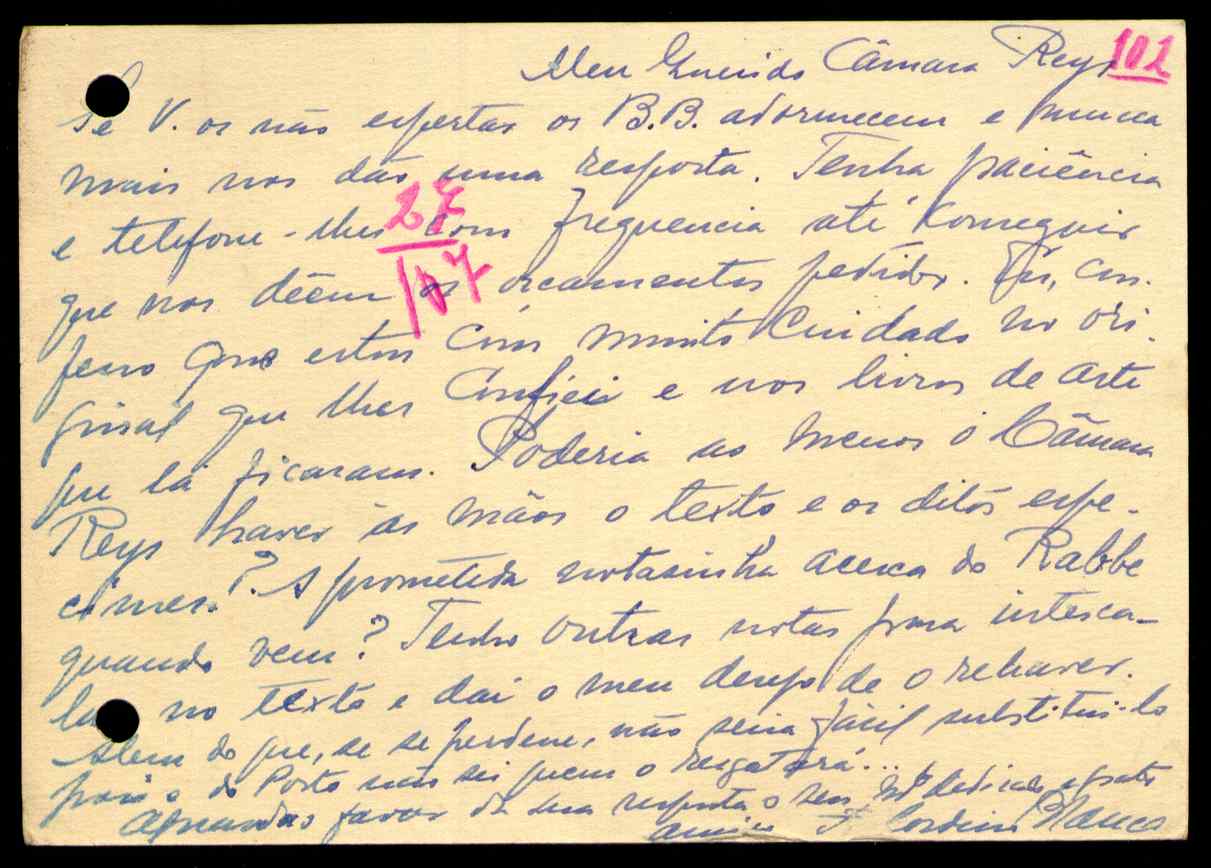 Meu Querido Câmara Reys 102
Se V. os não espertar os B.B. adormecem e nunca
mais nos dão uma resposta. Tenha paciência
e telefone-lhes com frequencia até conseguir
27
107
que nos dêem os orçamentos pedidos. Eu, con-
fesso que estou com muito cuidado no ori-
ginal que lhes confiei e nos livros de arte
que lá ficaram. Poderia ao menos o Câmara
Reys haver às mãos o texto e os ditos espe-
cimes? A prometida notasinha acerca do Rabbe
quando vem? Tenho outras notas para interca-
lar no texto e daí o meu desejo de o rehaver.
Alem do que, se se perdene, não seria fácil substitui-lo
pois o do Porto não sei quem o resgatará...
Aguardas favor da sua resposta o seu dedicado e grato
amigo F. Cordeiro Blanco